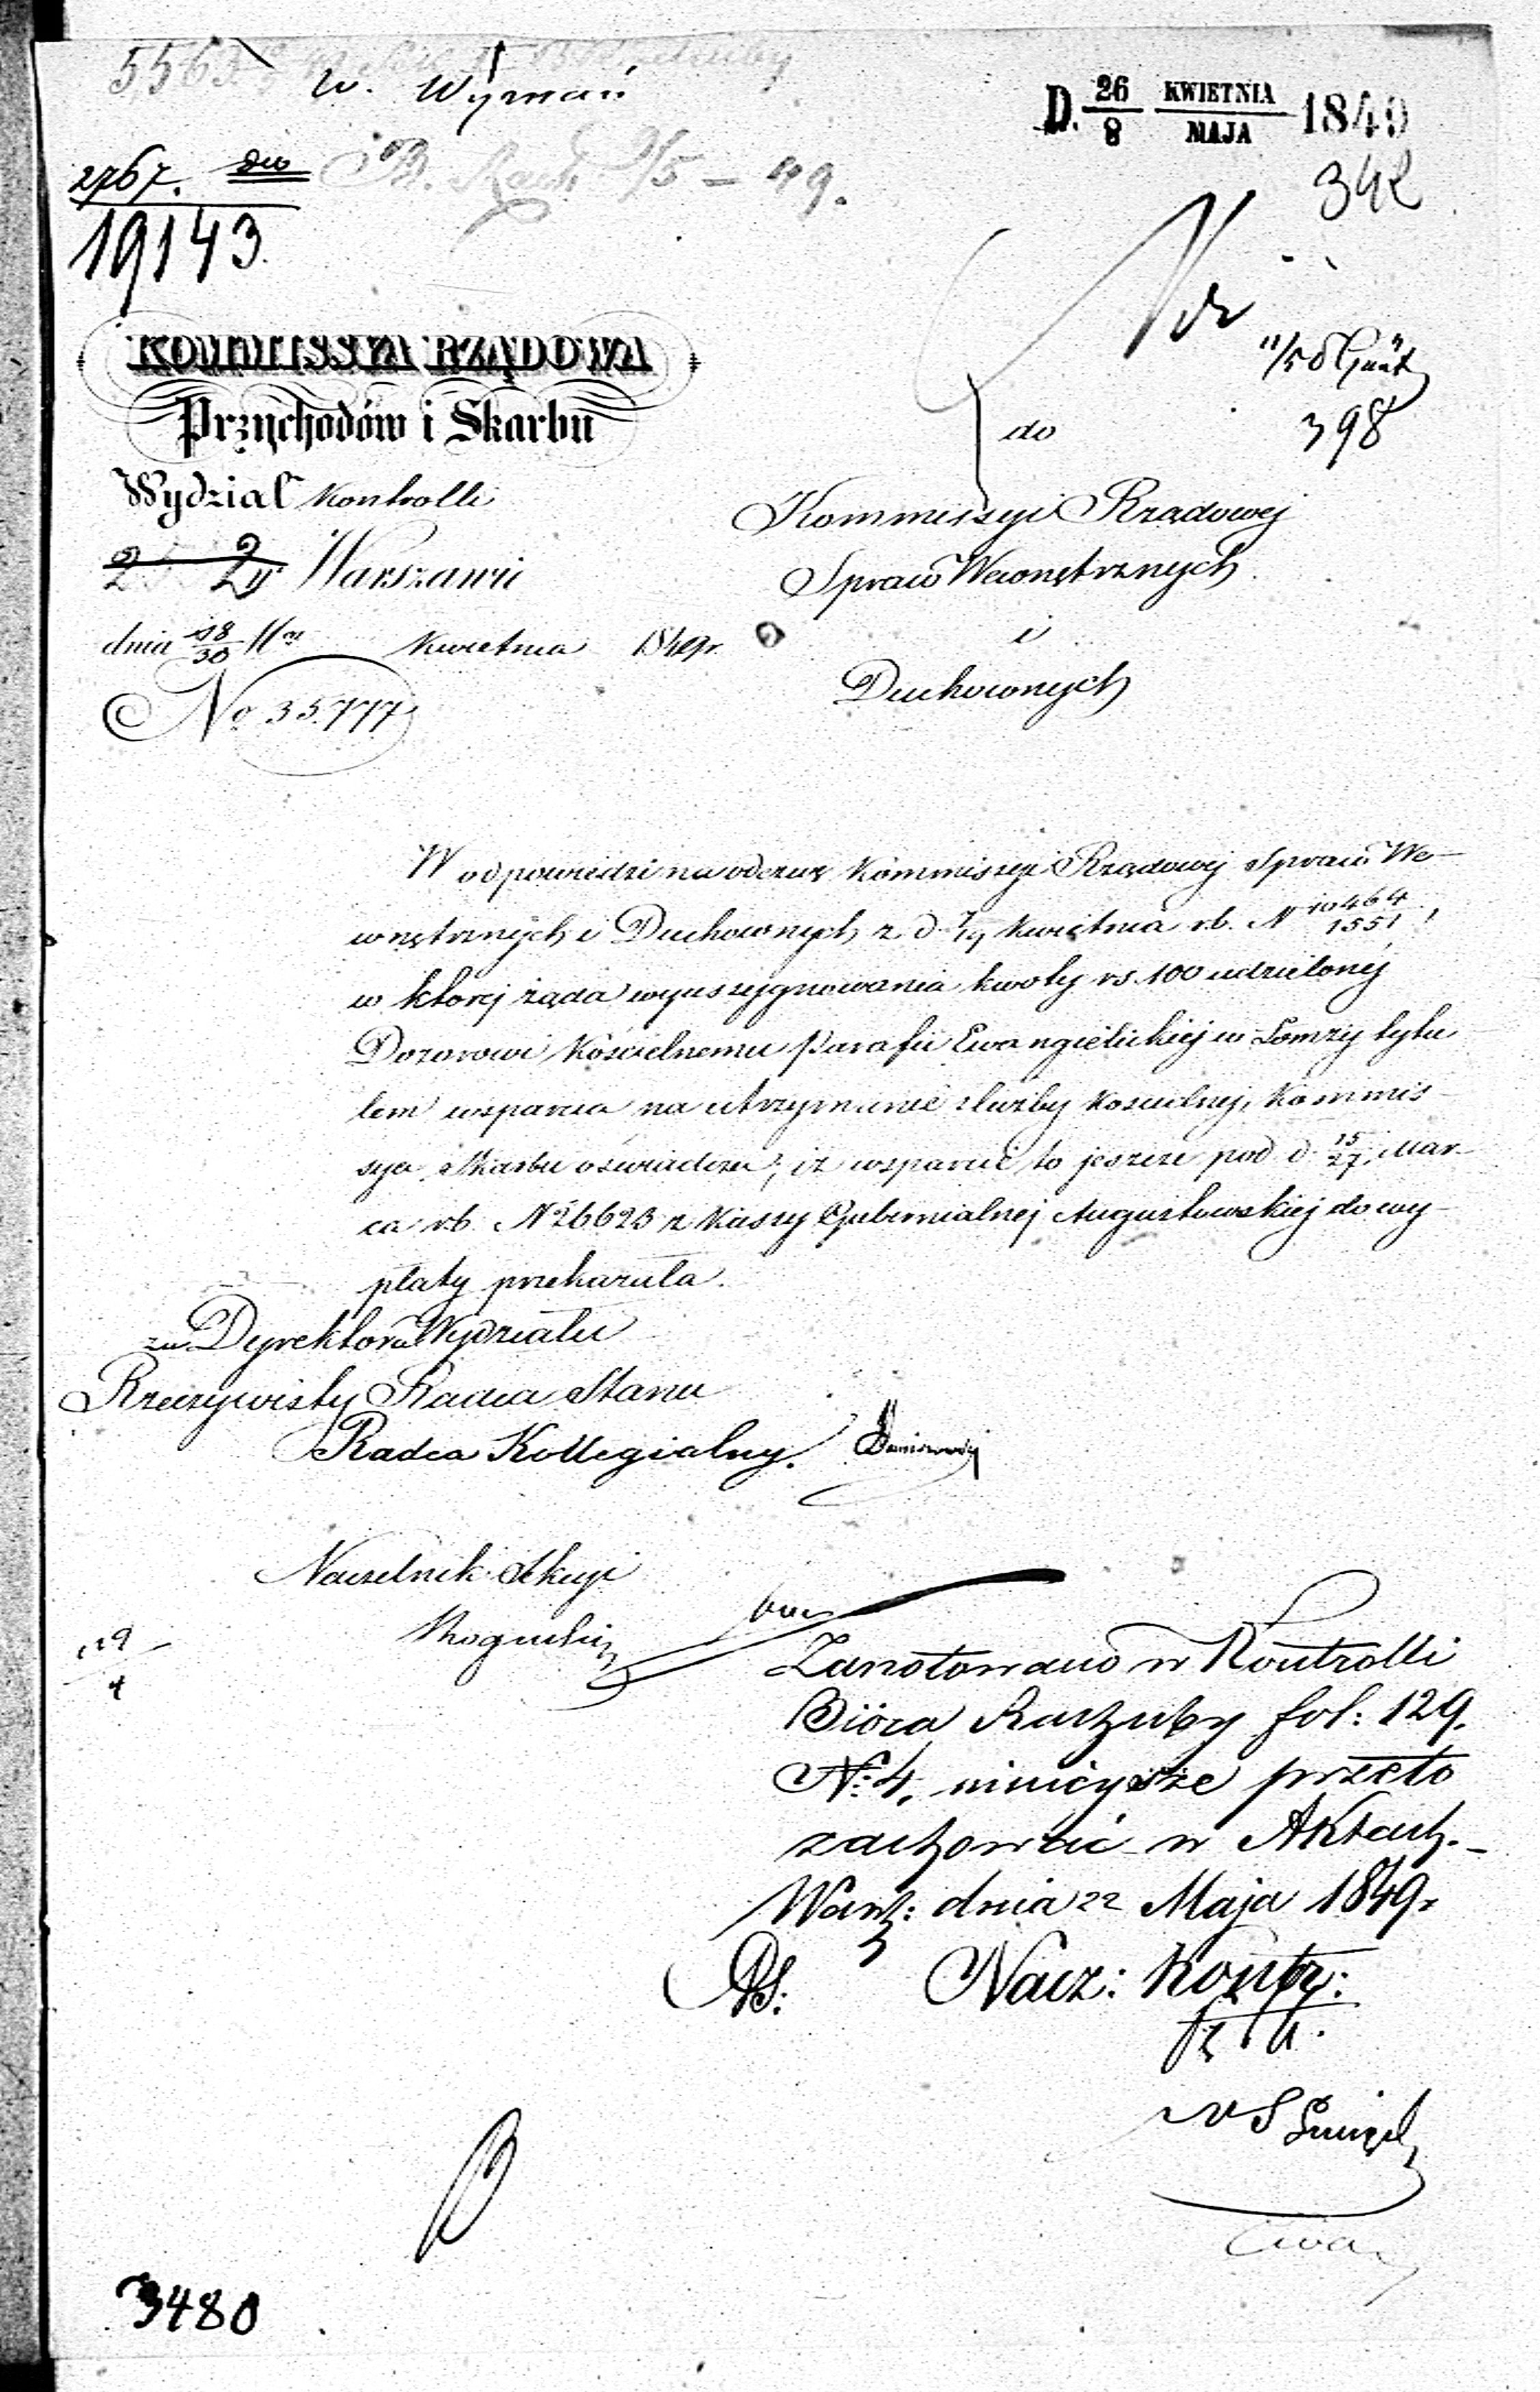 5563
W. Wyznań
D. 26/8 KWIETNIA/MAJA 1849
342
2767. dw
19143.
B. Rach. 9/5 – 49.
11/5
398
KOMMISSYA RZĄDOWA
Przychodów i Skarbu
Wydział Kontrolli
w Warszawie
dnia 18/30 Kwietnia 1849 r.
No 35.777
do
Kommissyi Rządowej
Spraw Wewnętrznych
i
Duchownych
W odpowiedzi na odezwę Kommissyi Rządowej Spraw We-
wnętrznych i Duchownych z d. 7/19 Kwietnia r.b. N 10464/1551,
w której żąda wyassygnowania kwoty rs. 100 udzielonéj
Dozorowi Kościelnemu Parafii Ewangielickiej w Łomży tytu
łem wsparcia na utrzymanie służby Kościelnej, Kommis-
sya Skarbu oświadcza, iż wsparcie to jeszcze pod d. 15/27 Mar-
ca r.b. N 26623 z Kassy Gubernialnej Augustowskiej do wy-
płaty przekazała.
za Dyrektora Wydziału
Rzeczywisty Radca Stanu
Radca Kollegialny.
Naczelnik Sekcyi
29/4
Zanotowano w Kontrolli
Bióra Rachuby fol: 129.
N: 4, niniejsze przeto
zachować w Aktach.–
Warsz: dnia 22 Maja 1849.
Nacz: Kontr:
3480